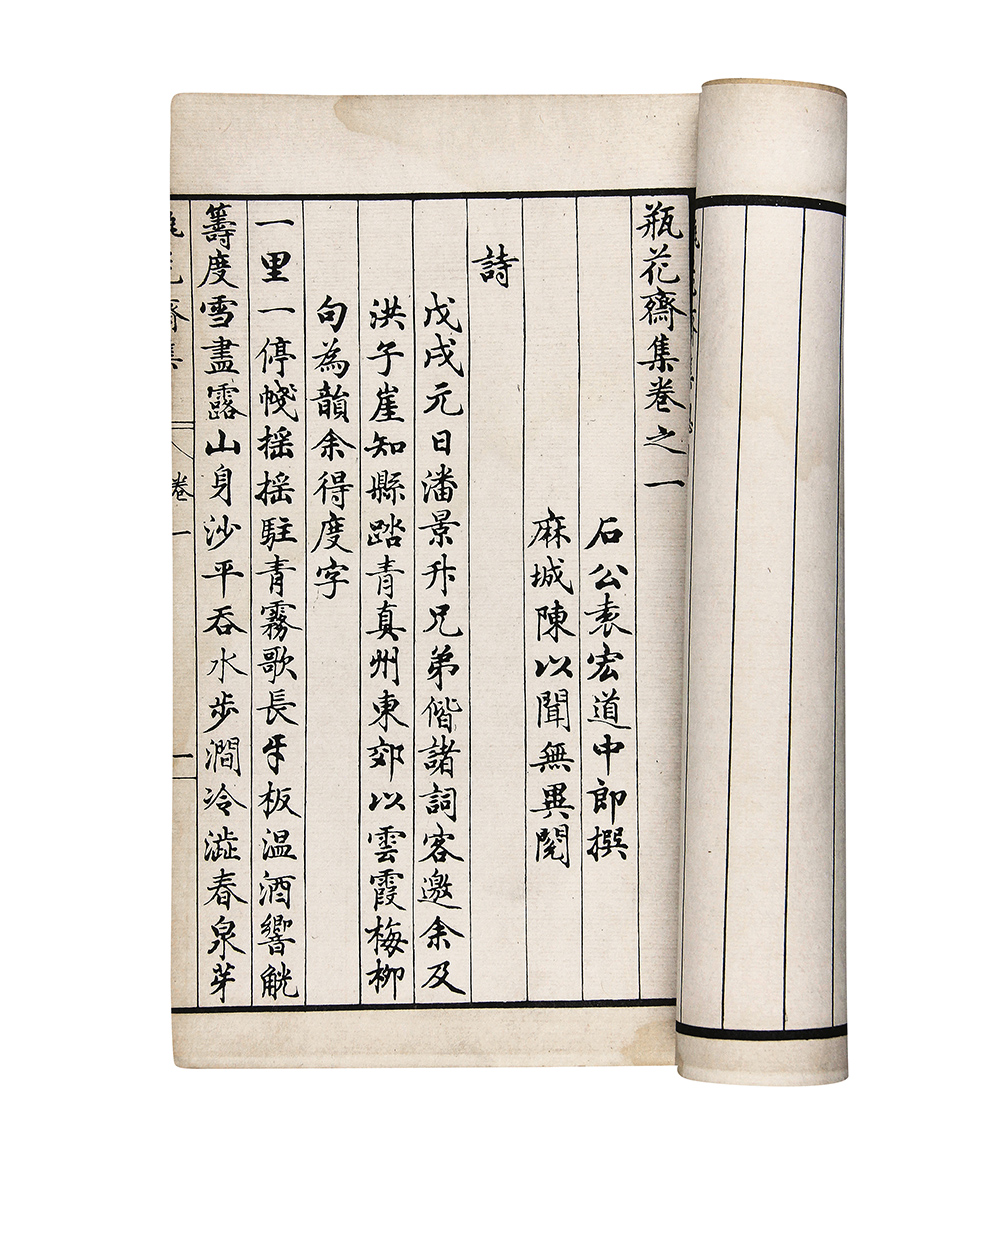 瓶花齋集卷之一
石公袁宏道中郎撰
麻城陳以聞無異閱
詩
戊戌元日潘景升兄弟偕諸詞客邀余及
洪子崖知縣踏青真州東郊以雲霞梅柳
句為韻余得度字
一里一停幰搖搖駐青霧歌長牙板温酒響觥
籌度雪盡露山身沙平吞水步澗冷澁春泉芽
卷一
一